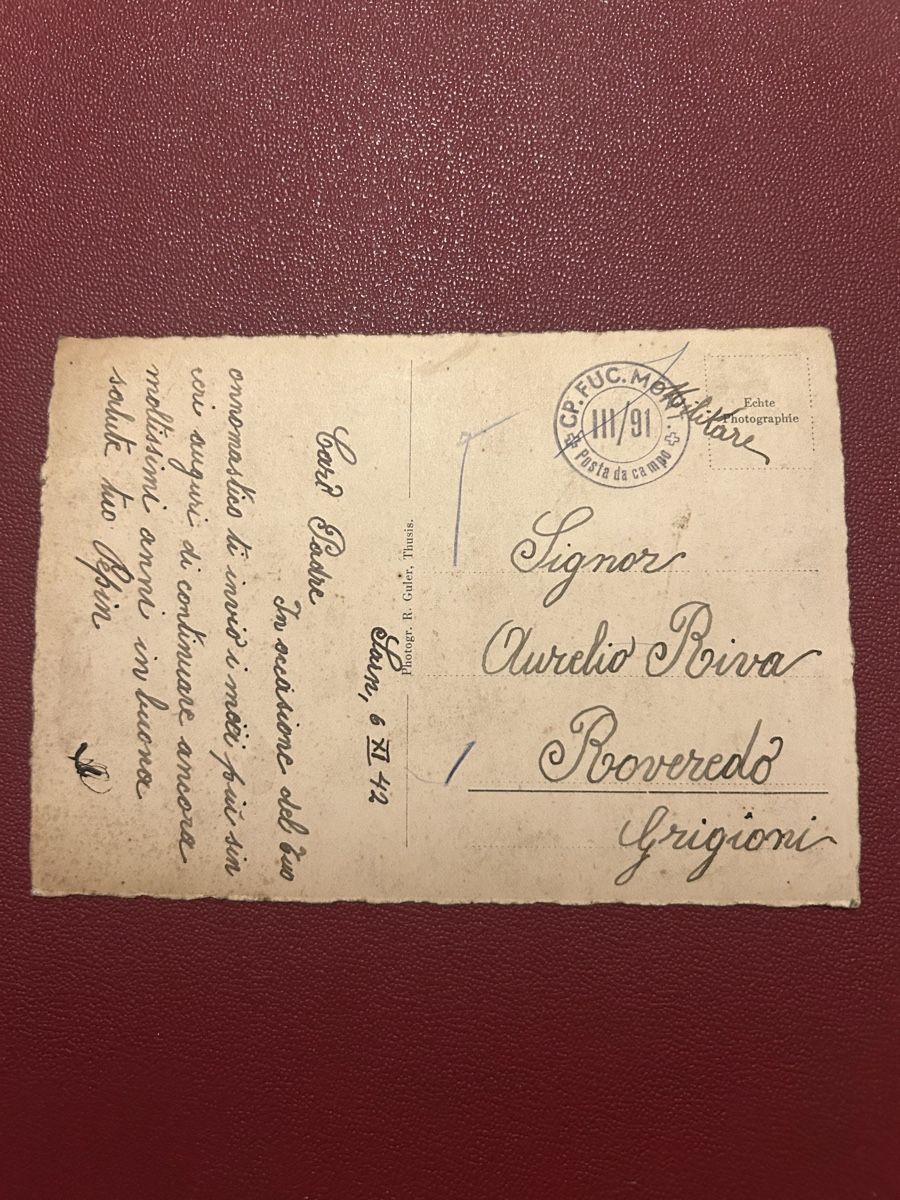 Sarn, 6 XI 42
Caro Padre
In occasione del tuo
onnomastico ti invio i miei più sin
ceri auguri di continuare ancora
moltissimi anni in buona
salute tuo Pepin
Photogr. R. Guler, Thusis.
CP. FUC. MONT.
III/91
Posta da campo
Militare
Echte
Photographie
Signor
Aurelio Riva
Roveredo
Grigioni